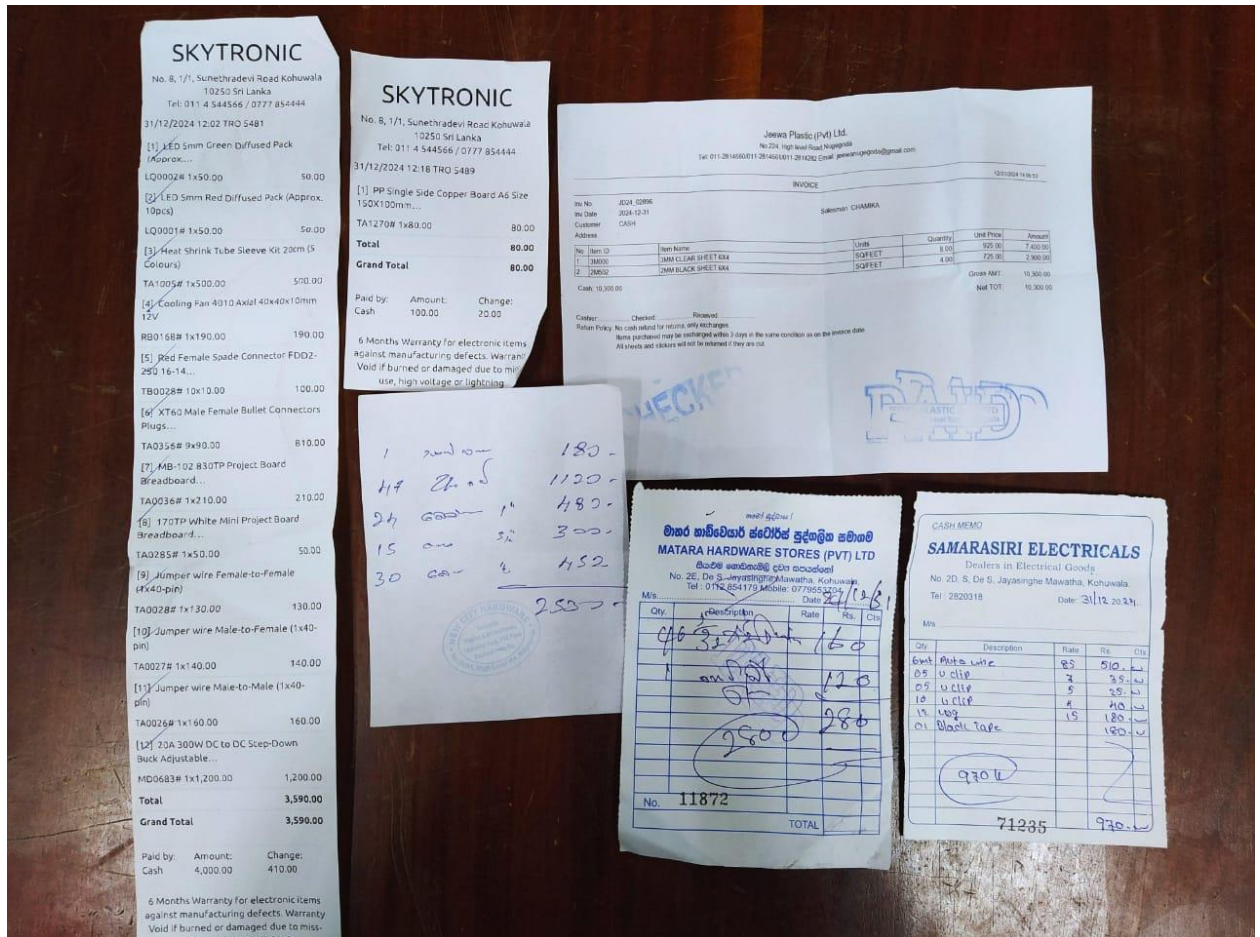 SKYTRONIC
No. 8, 1/1, Sunethradevi Road Kohuwala
10250 Sri Lanka
Tel: 011 4 544566 / 0777 854444
31/12/2024 12:02 TRO 5481
[1] LED 5mm Green Diffused Pack
(Approx....
LQ0002# 1x50.00 50.00
[2] LED 5mm Red Diffused Pack (Approx.
10pcs)
LQ0001# 1x50.00 50.00
[3] Heat Shrink Tube Sleeve Kit 20cm (5
Colours)
TA1005# 1x500.00 500.00
[4] Cooling Fan 4010 Axial 40x40x10mm
12V
RB0168# 1x190.00 190.00
[5] Red Female Spade Connector FDD2-
250 16-14...
TB0028# 10x10.00 100.00
[6] XT60 Male Female Bullet Connectors
Plugs...
TA0356# 9x90.00 810.00
[7] MB-102 830TP Project Board
Breadboard...
TA0036# 1x210.00 210.00
[8] 170TP White Mini Project Board
Breadboard...
TA0285# 1x50.00 50.00
[9] Jumper wire Female-to-Female
(1x40-pin)
TA0028# 1x130.00 130.00
[10] Jumper wire Male-to-Female (1x40-
pin)
TA0027# 1x140.00 140.00
[11] Jumper wire Male-to-Male (1x40-
pin)
TA0026# 1x160.00 160.00
[12] 20A 300W DC to DC Step-Down
Buck Adjustable...
MD0683# 1x1,200.00 1,200.00
Total 3,590.00
Grand Total 3,590.00
Paid by: Amount: Change:
Cash 4,000.00 410.00
6 Months Warranty for electronic items
against manufacturing defects. Warranty
Void if burned or damaged due to miss-
SKYTRONIC
No. 8, 1/1, Sunethradevi Road Kohuwala
10250 Sri Lanka
Tel: 011 4 544566 / 0777 854444
31/12/2024 12:18 TRO 5489
[1] PP Single Side Copper Board A6 Size
150X100mm...
TA1270# 1x80.00 80.00
Total 80.00
Grand Total 80.00
Paid by: Amount: Change:
Cash 100.00 20.00
6 Months Warranty for electronic items
against manufacturing defects. Warranty
Void if burned or damaged due to
use, high voltage or lightning
Jeewa Plastic (Pvt) Ltd.
No.224, High level Road, Nugegoda
Tel: 011-2814560/011-2814561/011-2814282 Email: jeewanugegoda@gmail.com
INVOICE
Inv No JD24_02896
Inv Date 2024-12-31
Customer CASH
Address
Salesman CHAMIKA
No Item ID Item Name Units Quantity Unit Price Amount
1 3M000 3MM CLEAR SHEET 6X4 SQ/FEET 8.00 925.00 7,400.00
2 2M502 2MM BLACK SHEET 6X4 SQ/FEET 4.00 725.00 2,900.00
Gross AMT: 10,300.00
Net TOT: 10,300.00
Cash: 10,300.00
Cashier: Checked: Received
Return Policy: No cash refund for returns, only exchanges.
Items purchased may be exchanged within 3 days in the same condition as on the invoice date.
All sheets and stickers will not be returned if they are cut.
CHECKED
PAID
1 180-
47 1120-
24 1" 480-
15 300-
30 452
2530-
මාතර හාඩ්වෙයාර් ස්ටෝර්ස් පුද්ගලික සමාගම
MATARA HARDWARE STORES (PVT) LTD
සියළුම ගොඩනැගිලි ද්‍රව්‍ය සපයන්නෝ
No. 2E, De S. Jayasinghe Mawatha, Kohuwala.
Tel : 0112 854179 Mobile: 0779553704
M/s Date 24/12/31
Qty. Description Rate Rs. Cts
160
1 120
280
2800
No. 11872
TOTAL
CASH MEMO
SAMARASIRI ELECTRICALS
Dealers in Electrical Goods
No. 2D, S, De S, Jayasinghe Mawatha, Kohuwala.
Tel : 2820318 Date: 31/12 2024
M/s
Qty Description Rate Rs. Cts
6mt Auto wire 85 510.
05 u clip 7 35.
05 u clip 5 25.
10 u clip 4 40
12 Lug 15 180.
01 Black Tape 180.
970
71235 970.